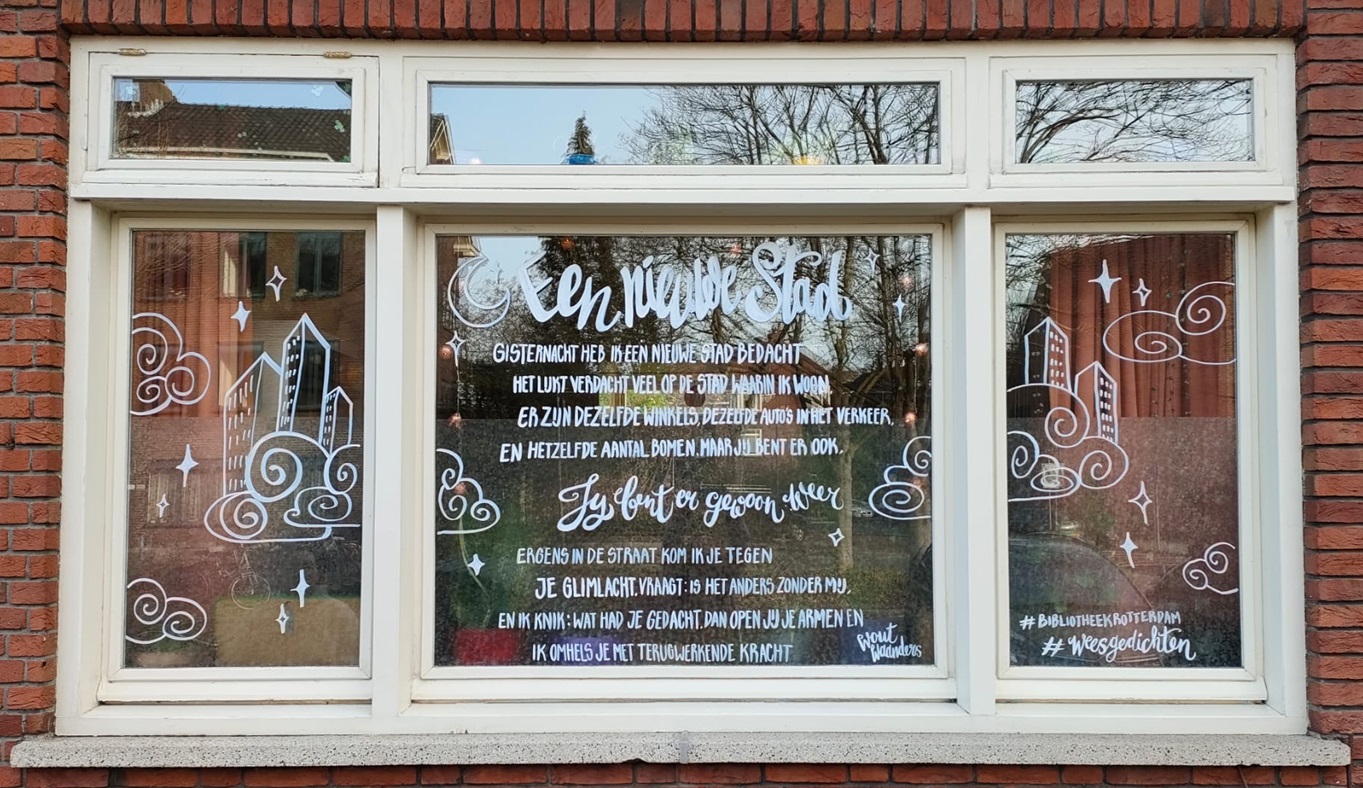 Een nieuwe Stad
GISTERNACHT HEB IK EEN NIEUWE STAD BEDACHT
HET LIJKT VERDACHT VEEL OP DE STAD WAARIN IK WOON.
ER ZIJN DEZELFDE WINKELS, DEZELFDE AUTO'S IN HET VERKEER,
EN HETZELFDE AANTAL BOMEN. MAAR JIJ BENT ER OOK.
Jij bent er gewoon weer
ERGENS IN DE STRAAT KOM IK JE TEGEN
JE GLIMLACHT, VRAAGT: IS HET ANDERS ZONDER MIJ,
EN IK KNIK: WAT HAD JE GEDACHT. DAN OPEN JIJ JE ARMEN EN
IK OMHELS JE MET TERUGWERKENDE KRACHT
Wout
Waanders
#BIBLIOTHEEKROTTERDAM
#Weesgedichten